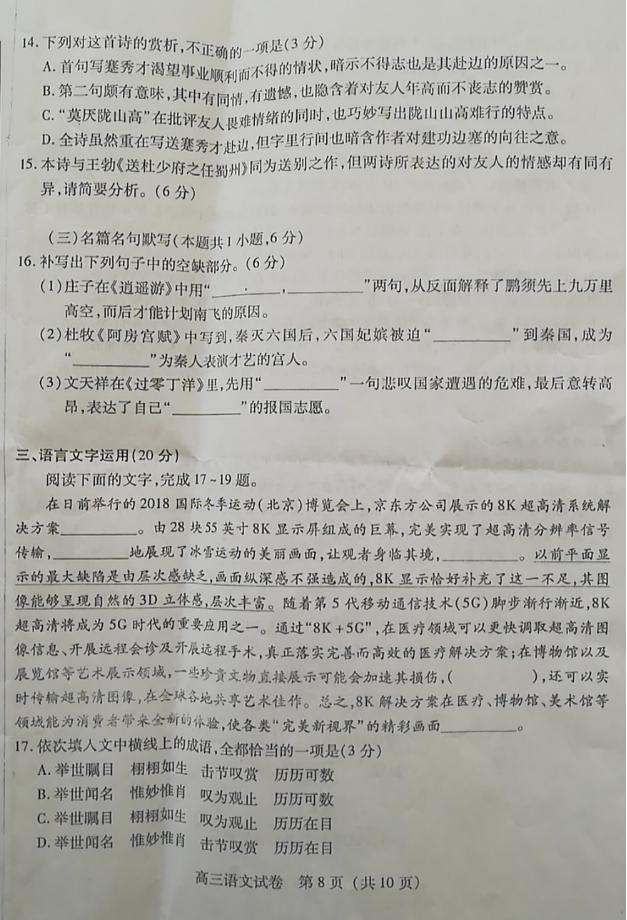 14.下列对这首诗的赏析,不正确的一项是(3 分)
A.首句写蹇秀才渴望事业顺利而不得的情状,暗示不得志也是其赴边的原因之一。
B.第二句颇有意味,其中有同情,有遗憾,也隐含着对友人年高而不丧志的赞赏。
C.“莫厌陇山高”在批评友人畏难情绪的同时,也巧妙写出陇山山高难行的特点。
D.全诗虽然重在写送蹇秀才赴边,但字里行间也暗含作者对建功边塞的向往之意。
15.本诗与王勃《送杜少府之任蜀州》同为送别之作,但两诗所表达的对友人的情感却有同有
异,请简要分析。(6 分)
(三)名篇名句默写(本题共1小题,6 分)
16.补写出下列句子中的空缺部分。(6 分)
(1)庄子在《逍遥游》中用“________,________”两句,从反面解释了鹏须先上九万里
高空,而后才能计划南飞的原因。
(2)杜牧《阿房宫赋》中写到,秦灭六国后,六国妃嫔被迫“________”到秦国,成为
“________”为秦人表演才艺的宫人。
(3)文天祥在《过零丁洋》里,先用“________”一句悲叹国家遭遇的危难,最后意转高
昂,表达了自己“________”的报国志愿。
三、语言文字运用(20 分)
阅读下面的文字,完成 17~19 题。
在日前举行的 2018 国际冬季运动(北京)博览会上,京东方公司展示的 8K 超高清系统解
决方案________。由 28 块 55 英寸 8K 显示屏组成的巨幕,完美实现了超高清分辨率信号
传输,________地展现了冰雪运动的美丽画面,让观者身临其境,________。以前平面显
示的最大缺陷是由层次感缺乏,画面纵深感不强造成的,8K 显示恰好补充了这一不足,其图
像能够呈现自然的 3D 立体感,层次丰富。随着第 5 代移动通信技术(5G)脚步渐行渐近,8K
超高清将成为 5G 时代的重要应用之一。通过“8K+5G”,在医疗领域可以更快调取超高清图
像信息、开展远程会诊及开展远程手术,真正落实完善而高效的医疗解决方案;在博物馆以及
展览馆等艺术展示领域,一些珍贵文物直接展示可能会加速其损伤,(        ),还可以实
时传输超高清图像,在全球各地共享艺术佳作。总之,8K 解决方案在医疗、博物馆、美术馆等
领域能为消费者带来全新的体验,使各类“完美新视界”的精彩画面________。
17.依次填入文中横线上的成语,全都恰当的一项是(3 分)
A.举世瞩目 栩栩如生 击节叹赏 历历可数
B.举世闻名 惟妙惟肖 叹为观止 历历可数
C.举世瞩目 栩栩如生 叹为观止 历历在目
D.举世闻名 惟妙惟肖 击节叹赏 历历在目
高三语文试卷 第 8 页 (共 10 页)